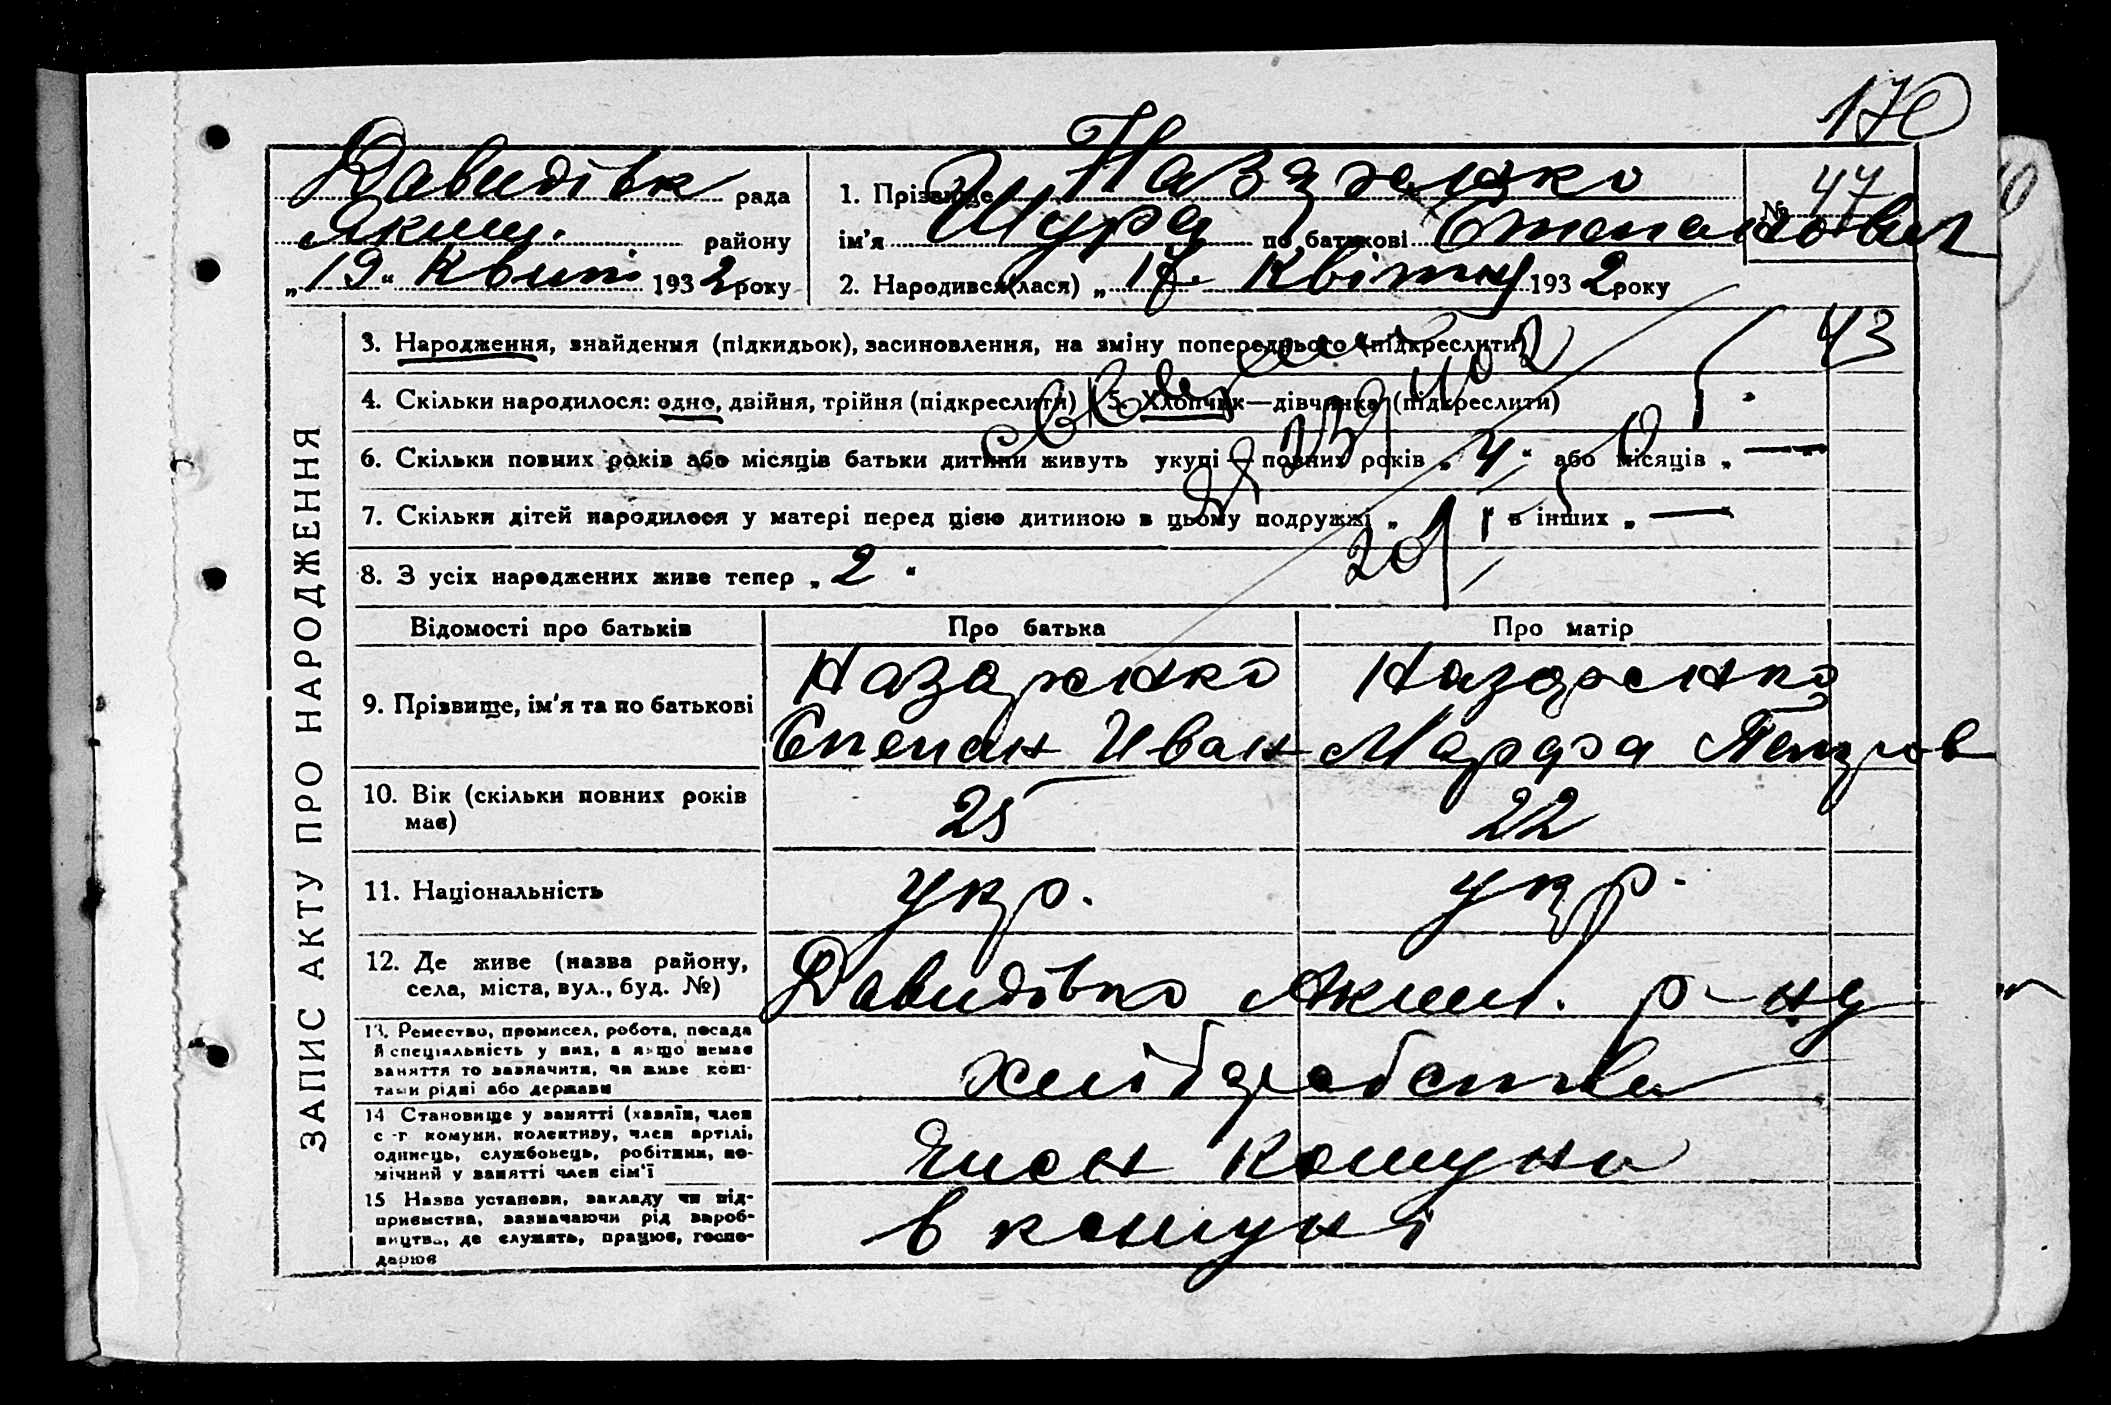 170
Давидівк рада
Яким. району
„19“ Квит 1932 року
1. Прізвище Назаренко
ім'я Шура по батькові Степанович
№ 47
2. Народився(лася) „17 Квітня 1932 року
ЗАПИС АКТУ ПРО НАРОДЖЕННЯ
3. Народження, знайдення (підкидьок), засиновлення, на зміну попереднього (підкреслити)
43
4. Скільки народилося: одно, двійня, трійня (підкреслити) 5. Хлопчик—дівчинка (підкреслити)
6. Скільки повних років або місяців батьки дитини живуть укупі — повних років „4“ або місяців „—“
7. Скільки дітей народилося у матері перед цією дитиною в цьому подружжі „1“ в інших „—“
8. З усіх народжених живе тепер „2“
Відомості про батьків Про батька Про матір
9. Прізвище, ім'я та по батькові
Назаренко Назаренко
Степан Иван Марфа Петров
10. Вік (скільки повних років має) 25 22
11. Національність укр. укр.
12. Де живе (назва району, села, міста, вул., буд. №)
Давидівка Яким. р-ну
13. Ремество, промисел, робота, посада й спеціяльність у них, а якщо немає заняття то зазначити, чи живе коштами рідні або держави
хліборобства
14 Становище у занятті (хазяїн, член с-г комуни, колективу, член артілі, одинець, службовець, робітник, помічний у занятті член сім'ї
Член Комуни
15 Назва установи, закладу чи підприємства, зазначаючи рід виробництва, де служить, працює, господарює
в комуні